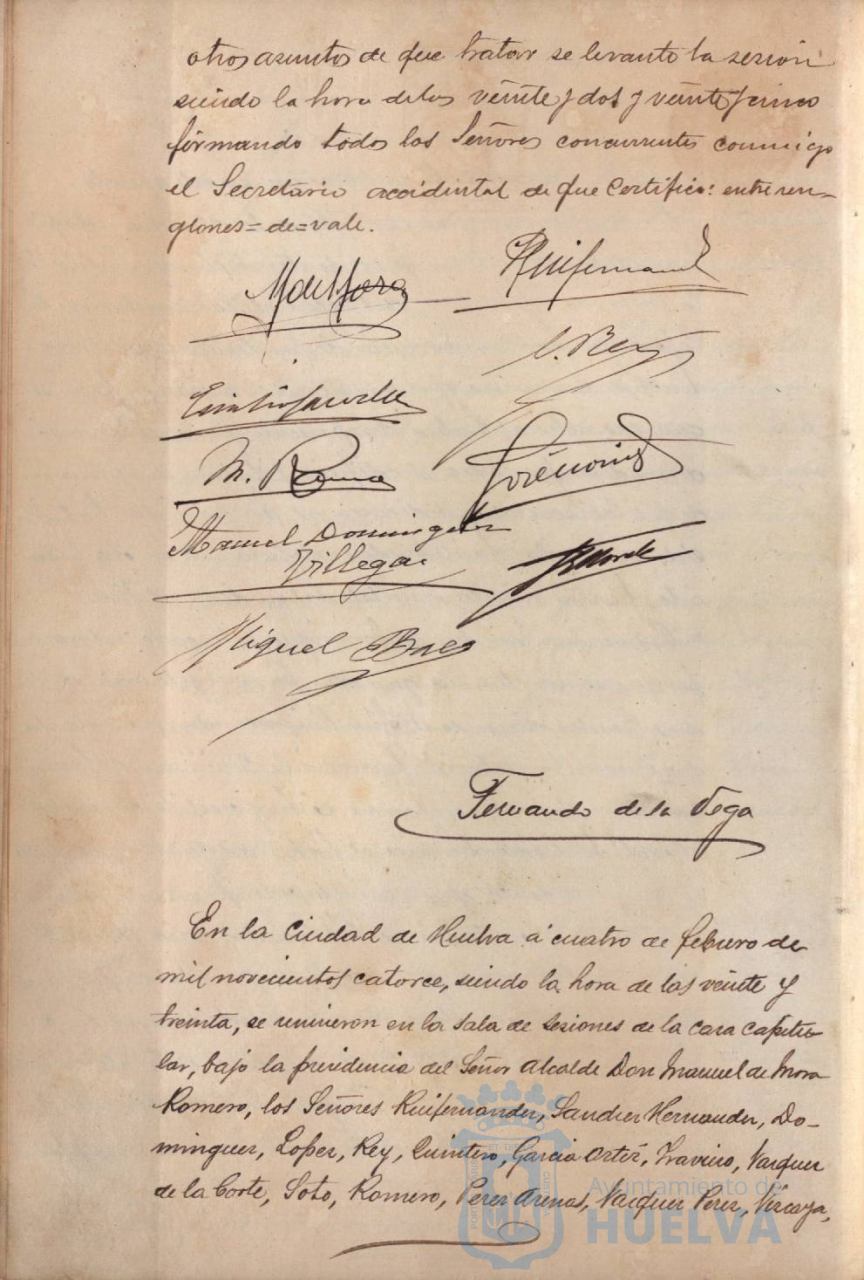 otros asuntos de que tratar se levanto la sesion
siendo la hora de las veinte y dos y veinte y cinco
firmando todos los Señores concurrentes conmigo
el Secretario accidental de que certifico: entre ren-
glones=de=vale.
M de Mora
Ruifernand
J. Rey
M. Rom
Manuel Dominguez
Villegas
Miguel Baez
Fernando de la Vega
En la Ciudad de Huelva á cuatro de febrero de
mil novecientos catorce, siendo la hora de las veinte y
treinta, se reunieron en la sala de sesiones de la casa capitu-
lar, bajo la presidencia del Señor Alcalde Don Manuel de Mora
Romero, los Señores Ruifernandez, Sanchez Hernandez, Do-
minguez, Lopez, Rey, Quintero, Garcia Ortiz, Traviero, Vazquez
de la Corte, Soto, Romero, Perez Arenas, Vazquez Perez, Vizcaya,
Ayuntamiento de
HUELVA